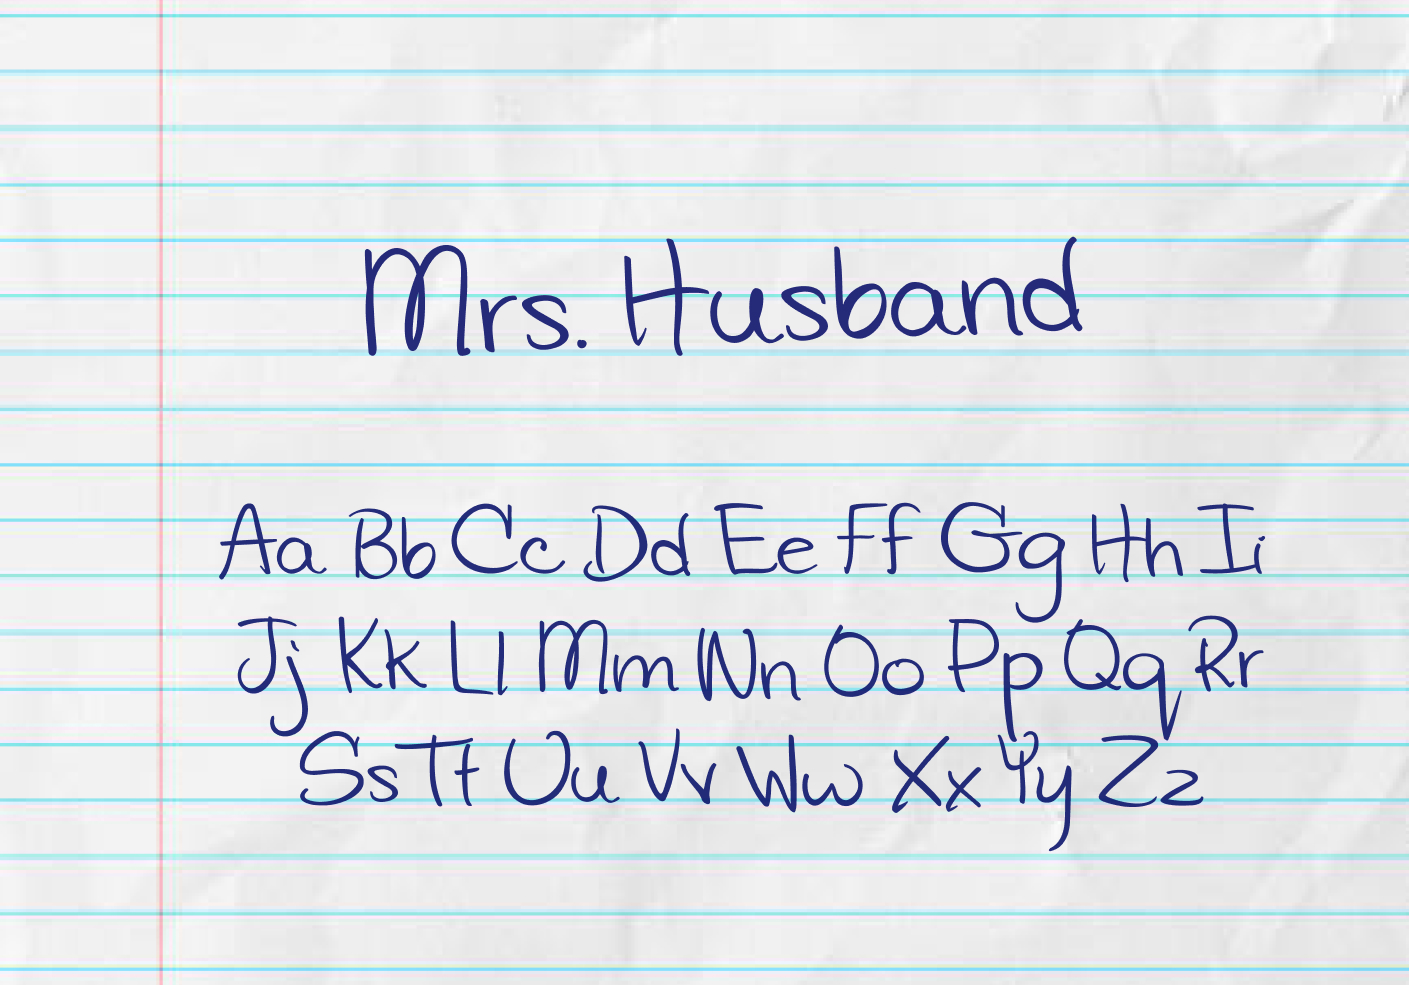 Mrs. Husband
Aa Bb Cc Dd Ee Ff Gg Hh Ii
Jj Kk Ll Mm Nn Oo Pp Qq Rr
Ss Tt Uu Vv Ww Xx Yy Zz